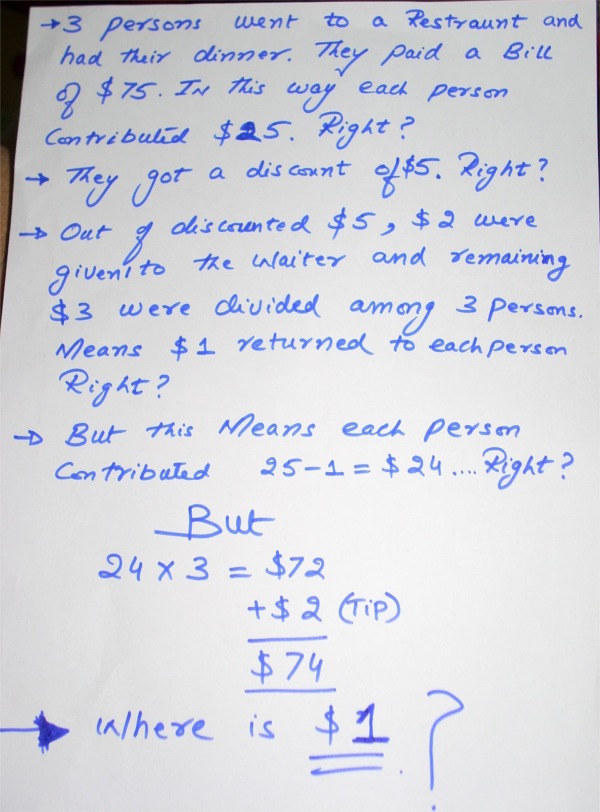 → 3 persons went to a Restraunt and
had their dinner. They paid a Bill
of $75. In this way each person
Contributed $25. Right?
→ They got a discount of $5. Right?
→ Out of discounted $5, $2 were
given to the Waiter and remaining
$3 were divided among 3 persons.
Means $1 returned to each person
Right?
→ But this Means each person
Contributed 25-1 = $24 .... Right?
But
24 x 3 = $72
+ $2 (TiP)
$74
→ Where is $1 . ?